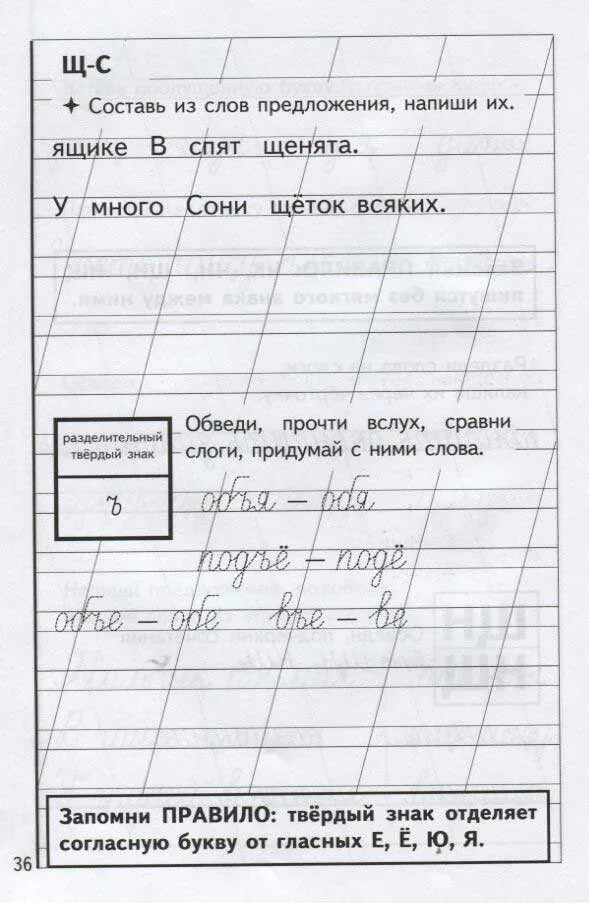 Щ-С
Составь из слов предложения, напиши их.
ящике В спят щенята.
У много Сони щёток всяких.
Обведи, прочти вслух, сравни
слоги, придумай с ними слова.
разделительный
твёрдый знак
ъ
объя – обя
подъё – подё
объе – обе въе – ве
Запомни ПРАВИЛО: твёрдый знак отделяет
согласную букву от гласных Е, Ё, Ю, Я.
36